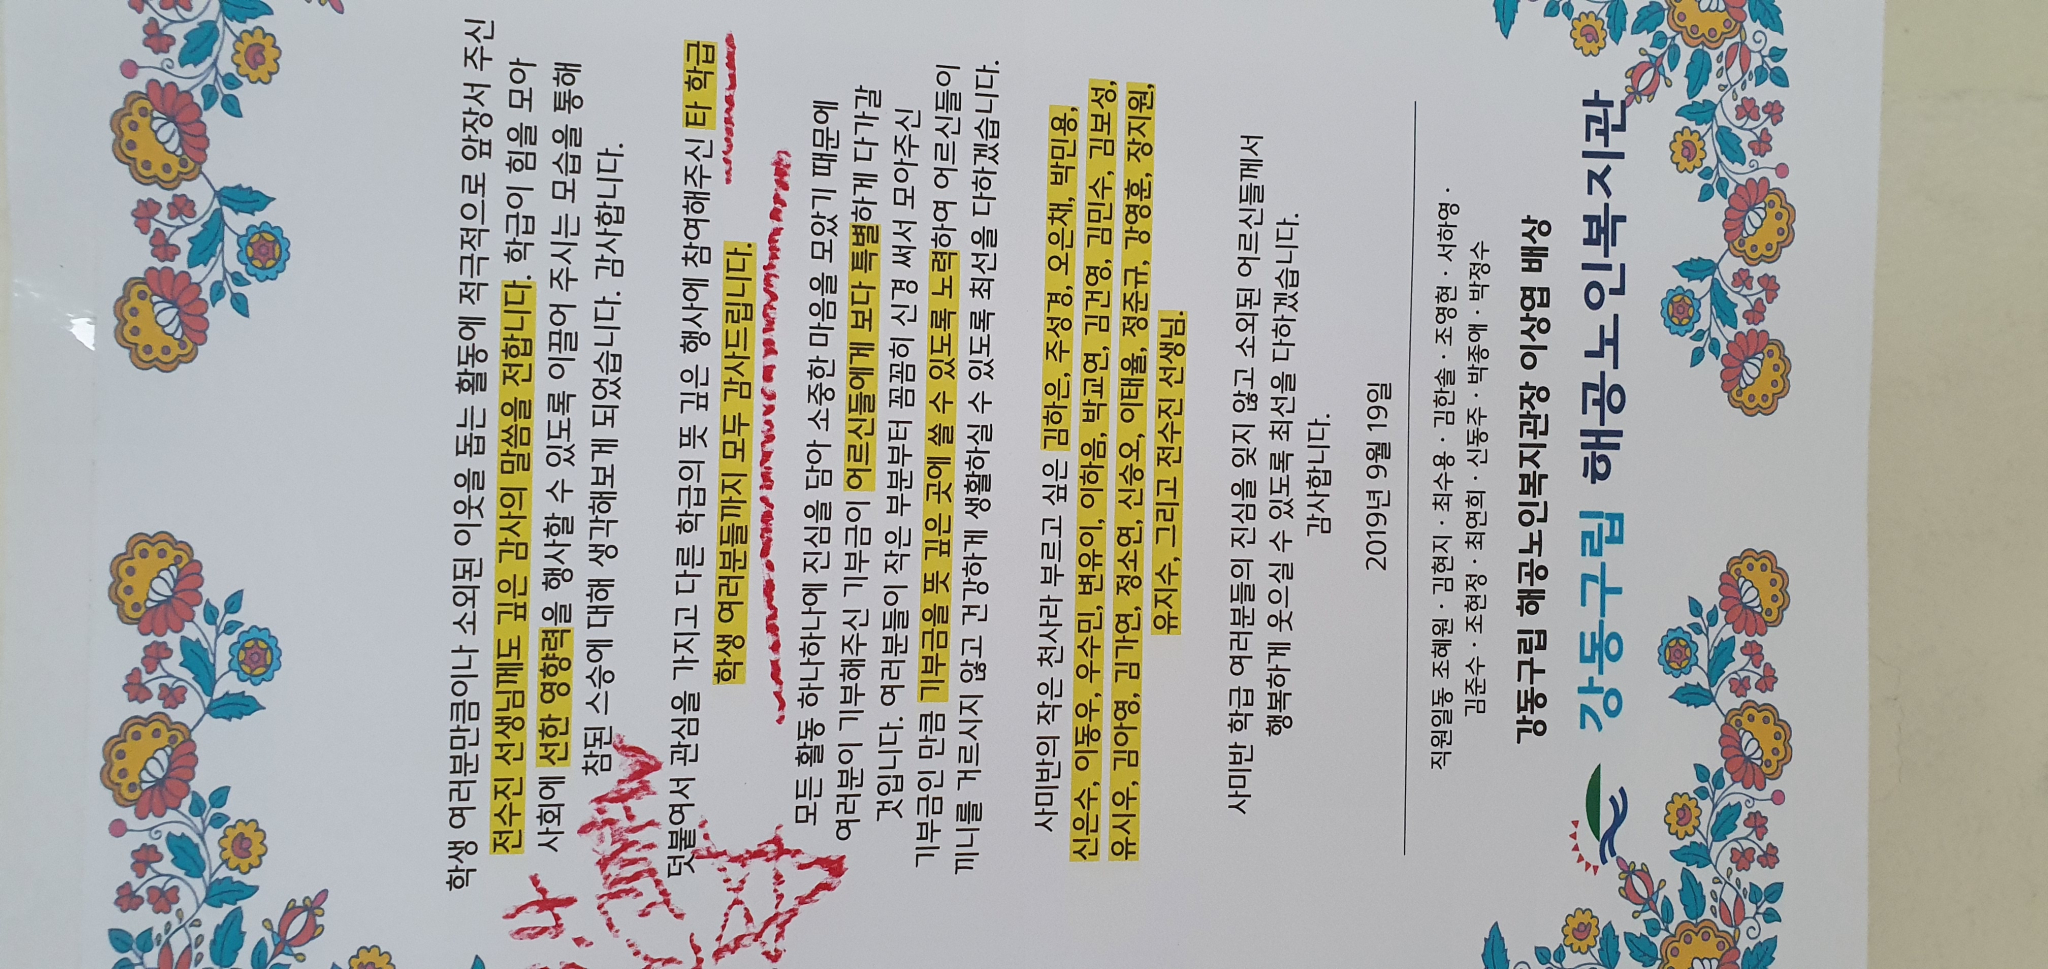 학생 여러분만큼이나 소외된 이웃을 돕는 활동에 적극적으로 앞장서 주신
전수진 선생님께도 깊은 감사의 말씀을 전합니다. 학급이 힘을 모아
사회에 선한 영향력을 행사할 수 있도록 이끌어 주시는 모습을 통해
참된 스승에 대해 생각해보게 되었습니다. 감사합니다.
덧붙여서 관심을 가지고 다른 학급의 뜻 깊은 행사에 참여해주신 타 학급
학생 여러분들까지 모두 감사드립니다.
모든 활동 하나하나에 진심을 담아 소중한 마음을 모았기 때문에
여러분이 기부해주신 기부금이 어르신들에게 보다 특별하게 다가갈
것입니다. 여러분들이 작은 부분부터 꼼꼼히 신경 써서 모아주신
기부금인 만큼 기부금을 뜻 깊은 곳에 쓸 수 있도록 노력하여 어르신들이
끼니를 거르시지 않고 건강하게 생활하실 수 있도록 최선을 다하겠습니다.
사미반의 작은 천사라 부르고 싶은 김하은, 주성경, 오은채, 박민용,
신은수, 이동우, 우수민, 변유이, 이하음, 박교연, 김건영, 김민수, 김보성,
유시우, 김아영, 김가연, 정소연, 신승오, 이태율, 정준규, 강영훈, 장지원,
유지수, 그리고 전수진 선생님.
사미반 학급 여러분들의 진심을 잊지 않고 소외된 어르신들께서
행복하게 웃으실 수 있도록 최선을 다하겠습니다.
감사합니다.
2019년 9월 19일
직원일동 조혜원 · 김현지 · 최수용 · 김한솔 · 조영현 · 서하영 ·
김준수 · 조현정 · 최연희 · 신동주 · 박종애 · 박정수
강동구립 해공노인복지관장 이상엽 배상
강동구립 해공노인복지관